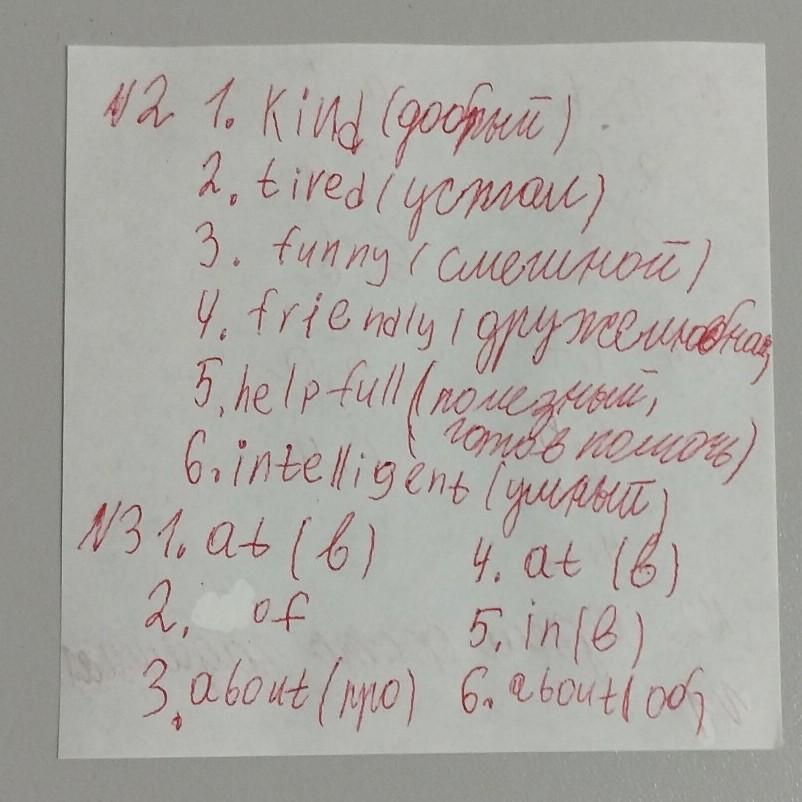 N2 1. Kind (добрый)
2. tired (устал)
3. funny (смешной)
4. friendly (дружелюбная)
5. helpfull (полезный,
готов помочь)
6. intelligent (умный)
N3 1. at (в) 4. at (в)
2. of 5. in (в)
3. about (про) 6. about (об)